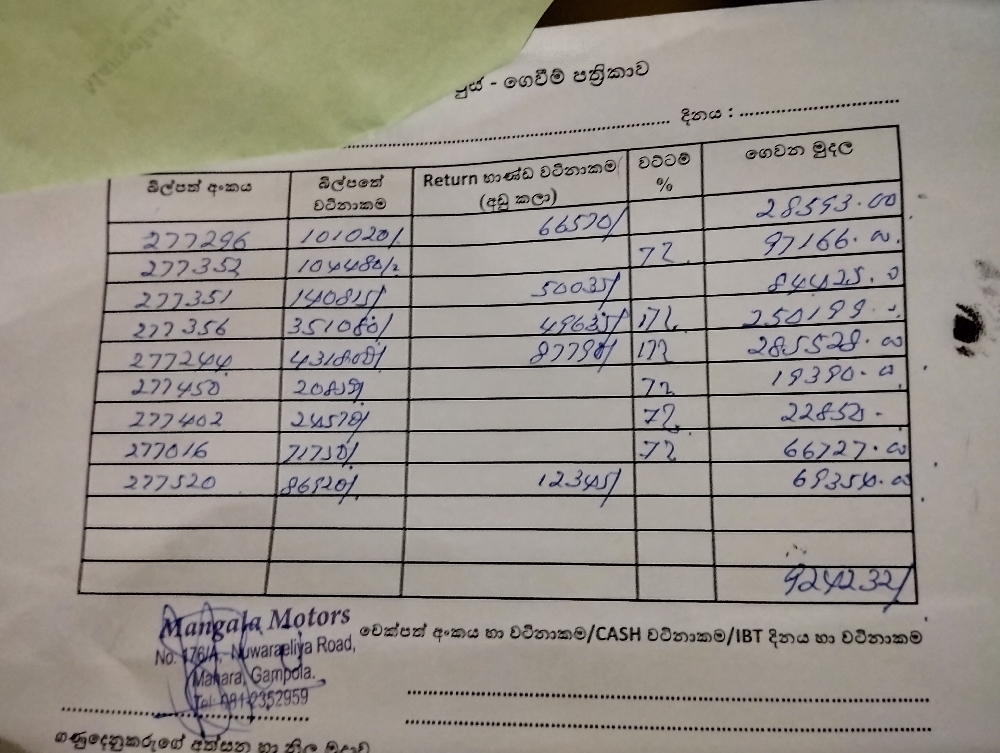 - ගෙවීම් පත්‍රිකාව
දිනය :
බිල්පත් අංකය බිල්පතේ වටිනාකම Return භාණ්ඩ වටිනාකම (අඩු කලා) වට්ටම් % ගෙවන මුදල
277296 101020/. 66570/ 28593.00
277352 104480/. 7% 97166.00
277351 140815/ 50035/ 84425.00
277356 351080/ 49635/ 17% 250199.00
277244 431800/ 87790/ 17% 285528.00
277450 20850/ 7% 19390.00
277402 24570/ 7% 22850.-
277016 71750/ 7% 66727.00
277520 86920/. 12345/ 69354.00
924232/
Mangala Motors
No. 176/A, Nuwaraeliya Road,
Mahara, Gampola.
Tel: 081-2352959
චෙක්පත් අංකය හා වටිනාකම/CASH වටිනාකම/IBT දිනය හා වටිනාකම
ගණුදෙනුකරුගේ අත්සන හා නිල මුද්‍රාව